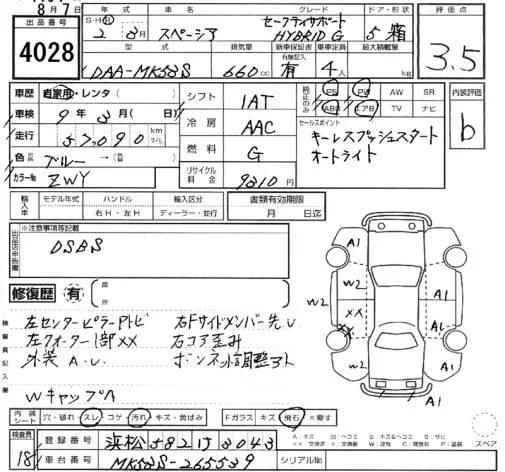 8月7日
出品番号 4028
S・H・R 年式 車名 グレード ドア・形状 評価点
2年3月 スペーシア セーフティサポート HYBRID G 5 箱 3.5
型式 排気量 新車保証書 有無記入 乗車定員 最大積載量
DAA-MK53S 660cc 有 4人 kg
車歴 自家用・レンタ( )
車検 9年3月( 日)
走行 57090 km マイル
色 ブルー →( )
カラーNo ZWY
シフト 1AT
冷房 AAC
燃料 G
リサイクル料金 9310円
純正のみ PS PW AW SR
ABS エアB TV ナビ
内装評価 b
セールスポイント
キーレスプッシュスタート
オートライト
輸入車 モデル年式 ハンドル 輸入区分
右H・左H ディーラー・並行
書類有効期限
月 日迄
出品店申告欄 ※注意事項等記載
DSBS
修復歴 有 箇所
検査員記入欄
左センターピラーアトビ 右Fサイドメンバー先U
左クォーター1部XX 右コア歪み
外装A.U. ボンネット調整アト
WキャップA
A1
W2
A1
W2
A1
XX
W2
A1
A1
内装シート 穴・破れ・スレ・コゲ・汚れ・キズ・黄ばみ
Fガラス キズ・飛石・×要す
スペア
検査員 18
登録番号 浜松582ワ3043
車台番号 MK53S-265539
シリアルNo.